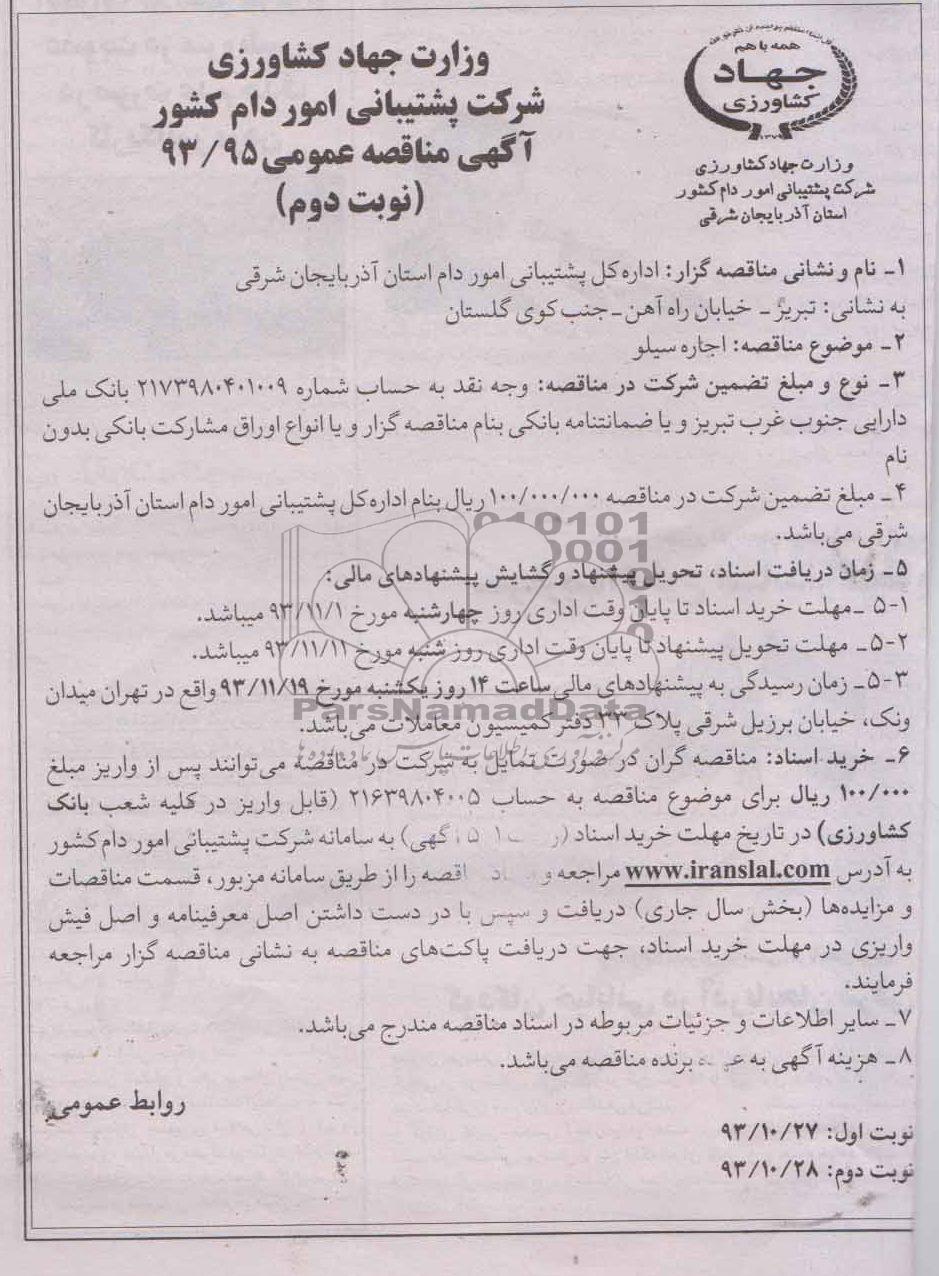 همه با هم
جهاد
کشاورزی
وزارت جهاد کشاورزی
شرکت پشتیبانی امور دام کشور
استان آذربایجان شرقی
وزارت جهاد کشاورزی
شرکت پشتیبانی امور دام کشور
آگهی مناقصه عمومی ۹۳/۹۵
(نوبت دوم)
۱ـ نام و نشانی مناقصه گزار: اداره کل پشتیبانی امور دام استان آذربایجان شرقی
به نشانی: تبریز ـ خیابان راه آهن ـ جنب کوی گلستان
۲ـ موضوع مناقصه: اجاره سیلو
۳ـ نوع و مبلغ تضمین شرکت در مناقصه: وجه نقد به حساب شماره ۲۱۷۳۹۸۰۴۰۱۰۰۹ بانک ملی
دارایی جنوب غرب تبریز و یا ضمانتنامه بانکی بنام مناقصه گزار و یا انواع اوراق مشارکت بانکی بدون
نام
۴ـ مبلغ تضمین شرکت در مناقصه ۱۰۰/۰۰۰/۰۰۰ ریال بنام اداره کل پشتیبانی امور دام استان آذربایجان
شرقی می‌باشد.
۵ـ زمان دریافت اسناد، تحویل پیشنهاد و گشایش پیشنهادهای مالی:
۵-۱ ـ مهلت خرید اسناد تا پایان وقت اداری روز چهارشنبه مورخ ۹۳/۱۱/۱ میباشد.
۵-۲ـ مهلت تحویل پیشنهاد تا پایان وقت اداری روز شنبه مورخ ۹۳/۱۱/۱۱ میباشد.
۵-۳ـ زمان رسیدگی به پیشنهادهای مالی ساعت ۱۴ روز یکشنبه مورخ ۹۳/۱۱/۱۹ واقع در تهران میدان
ونک، خیابان برزیل شرقی پلاک ۳۳ دفتر کمیسیون معاملات می‌باشد.
ParsNamadData
۶ـ خرید اسناد: مناقصه گران در صورت تمایل به شرکت در مناقصه می‌توانند پس از واریز مبلغ
۱۰۰/۰۰۰ ریال برای موضوع مناقصه به حساب ۲۱۶۳۹۸۰۴۰۰۵ (قابل واریز در کلیه شعب بانک
کشاورزی) در تاریخ مهلت خرید اسناد ( آگهی) به سامانه شرکت پشتیبانی امور دام کشور
به آدرس www.iranslal.com مراجعه و مناقصه را از طریق سامانه مزبور، قسمت مناقصات
و مزایده‌ها (بخش سال جاری) دریافت و سپس با در دست داشتن اصل معرفینامه و اصل فیش
واریزی در مهلت خرید اسناد، جهت دریافت پاکت‌های مناقصه به نشانی مناقصه گزار مراجعه
فرمایند.
۷ـ سایر اطلاعات و جزئیات مربوطه در اسناد مناقصه مندرج می‌باشد.
۸ـ هزینه آگهی به عهده برنده مناقصه می‌باشد.
روابط عمومی
نوبت اول: ۹۳/۱۰/۲۷
نوبت دوم: ۹۳/۱۰/۲۸